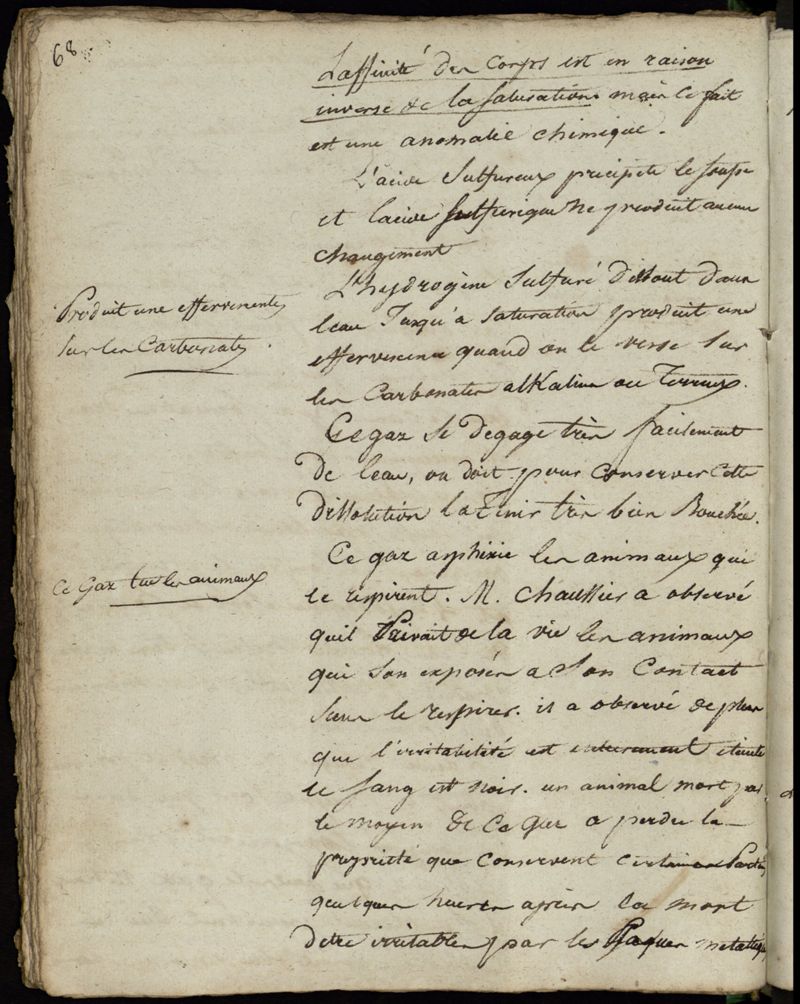 68
L'affinité des Corps est en raison
inverse de la Saturation. mais Ce fait
est une anomalie chimique.
L'acide Sulfureux précipite le soufre
et lacide Sulfurique ne produit aucun
changement
L'hydrogène Sulfuré Dissout dans
leau Jusqu'a Saturation produit une
effervescence quand on le verse sur
les Carbonates alKalins ou Terreux.
Produit une effervescente
Sur les Carbonates.
Ce gaz se degage très facilement
De leau, on doit pour Conserver Cette
Dissolution la Tenir très bien Bouchée.
Ce gaz asphixie les animaux qui
le respirent. M. Chaussier a observé
quil Privait de la vie les animaux
qui Son exposés a Son Contact
Sans le respirer. il a observé de plus
que l'irritabilité est entierement eteinte
le Sang est noir. un animal mort par
le moyen de Ce Gaz a perdu la
propriété que Conservent Certaines Parties
quelques heures après la mort
Detre irritables par les Plaques metalliq
Ce Gaz tue les animaux